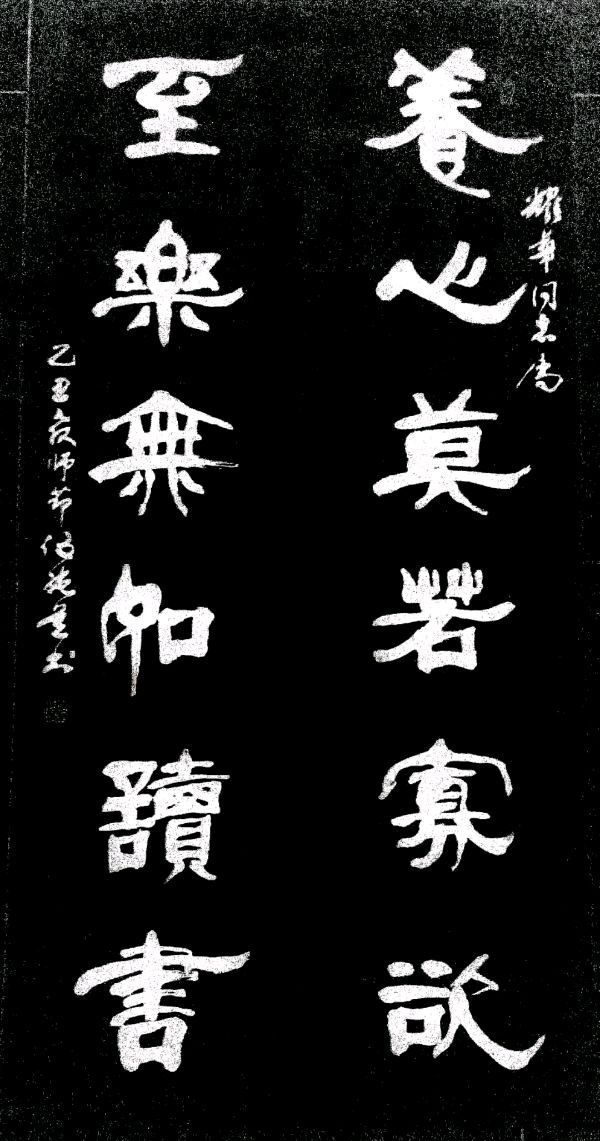 養心莫若寡欲
耀華同志屬
至樂無如讀書
乙丑教師節伯施書